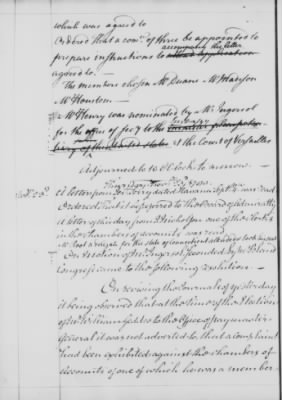 which was agreed to
Ordered that a com.ee of three be appointed to
accompany the letter
prepare instructions to
agreed to.
The members chosen Mr Duane Mr Madison
Mr Houston
Mr McHenry was nominated by Mr Ingersol
for the office of Secy to the
at the Court of Versailles
Adjourned to 10 oClock to morrow
A letter from dated was read
Ordered that it be referred to the Board of Admiralty
A letter of this day from J Nicholson one of the
in the chamber of accounts was read
Mr Root a delegate for the state of Connecticut attended & took his seat
On motion of Mr Ingersol seconded by Mr Bland
Congress came to the following resolution
On reviewing the Journals of yesterday
it being observed that at the time of the Election
of Mr William Geddes to the Office of paymaster
general it was not adverted to that a complaint
had been exhibited against the chambers of
Accounts of one of which he was a member